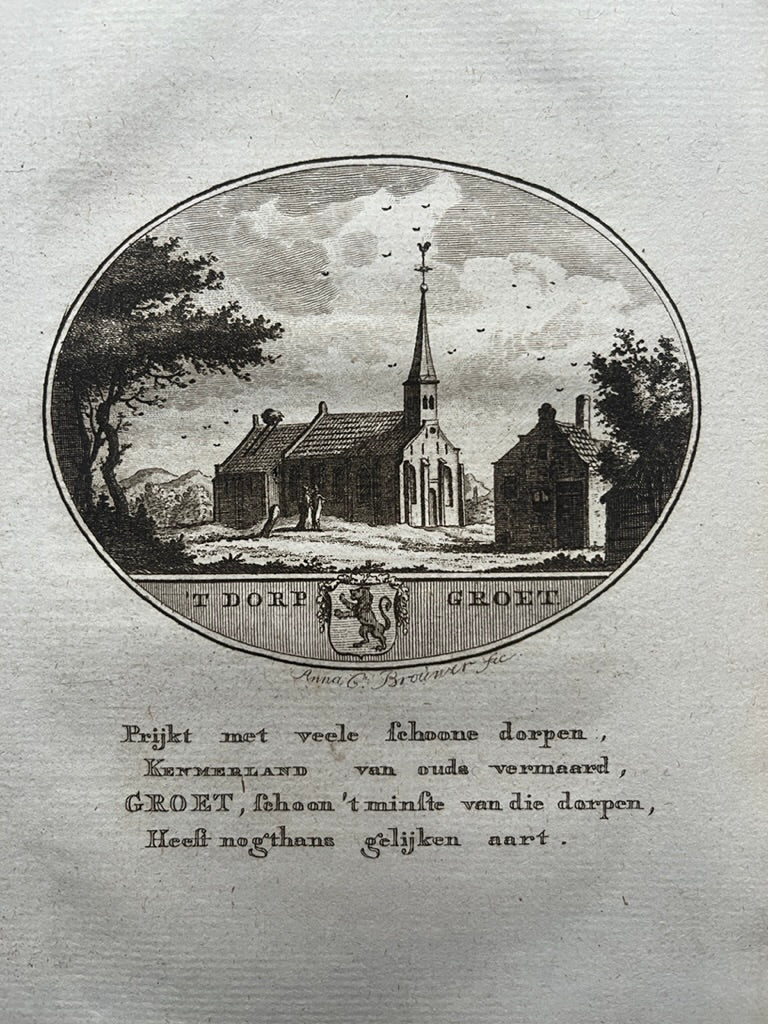 'T DORP GROET
Anna C. Brouwer fec.
Prijkt met veele ſchoone dorpen,
KENMERLAND van ouds vermaard,
GROET, ſchoon 't minſte van die dorpen,
Heeft nogthans gelijken aart.